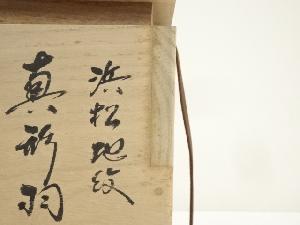 浜松地紋
真形羽